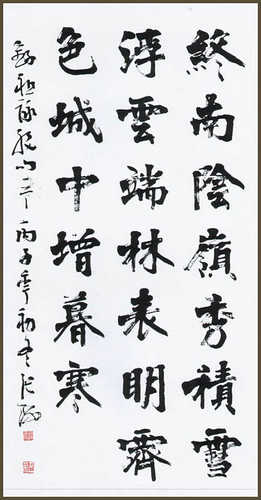 終南陰嶺秀積雪
浮雲端林表明霽
色城中增暮寒
祖詠 丙子年初冬